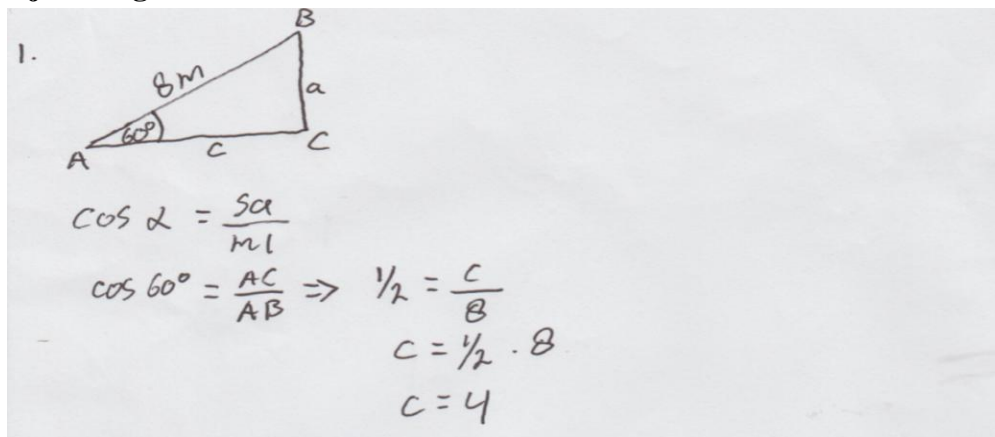 1.
B
8m
a
60°
A
c
C
cos α = sa/mi
cos 60° = AC/AB => 1/2 = c/8
c = 1/2 . 8
c = 4